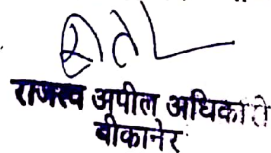 राजस्व अपील अधिकारी
बीकानेर